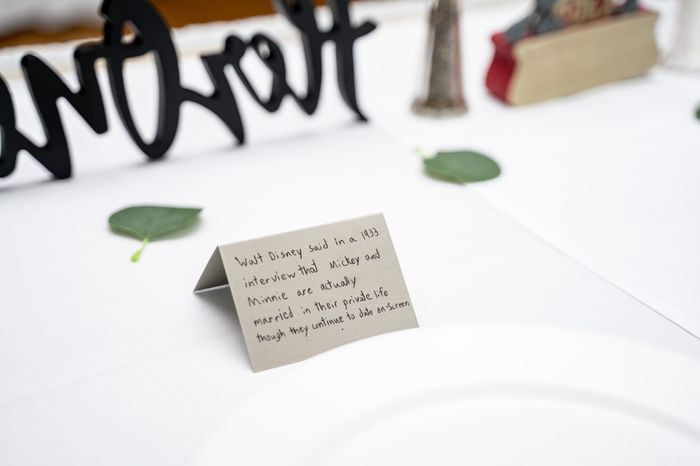 Walt Disney said in a 1933
interview that Mickey and
Minnie are actually
married in their private life
though they continue to date on-screen.